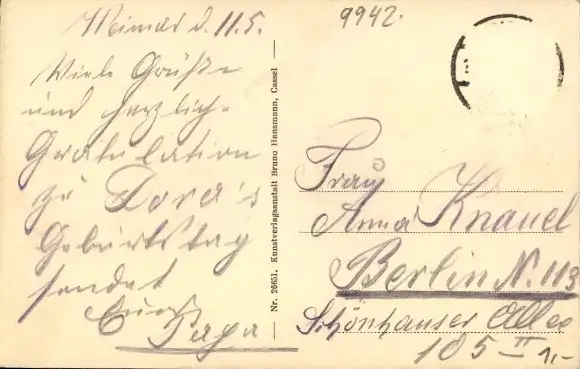 Weimar d. 11.5.
Viele Grüße
und herzlich-
Gratulation
zu Dora's
Geburtstag
sendet
Euer
Papa
Nr. 26651. Kunstverlagsanstalt Bruno Hansmann, Cassel
9942.
Frau
Anna Knauel
Berlin N. 113
Schönhauser Allee
105 III
1,-